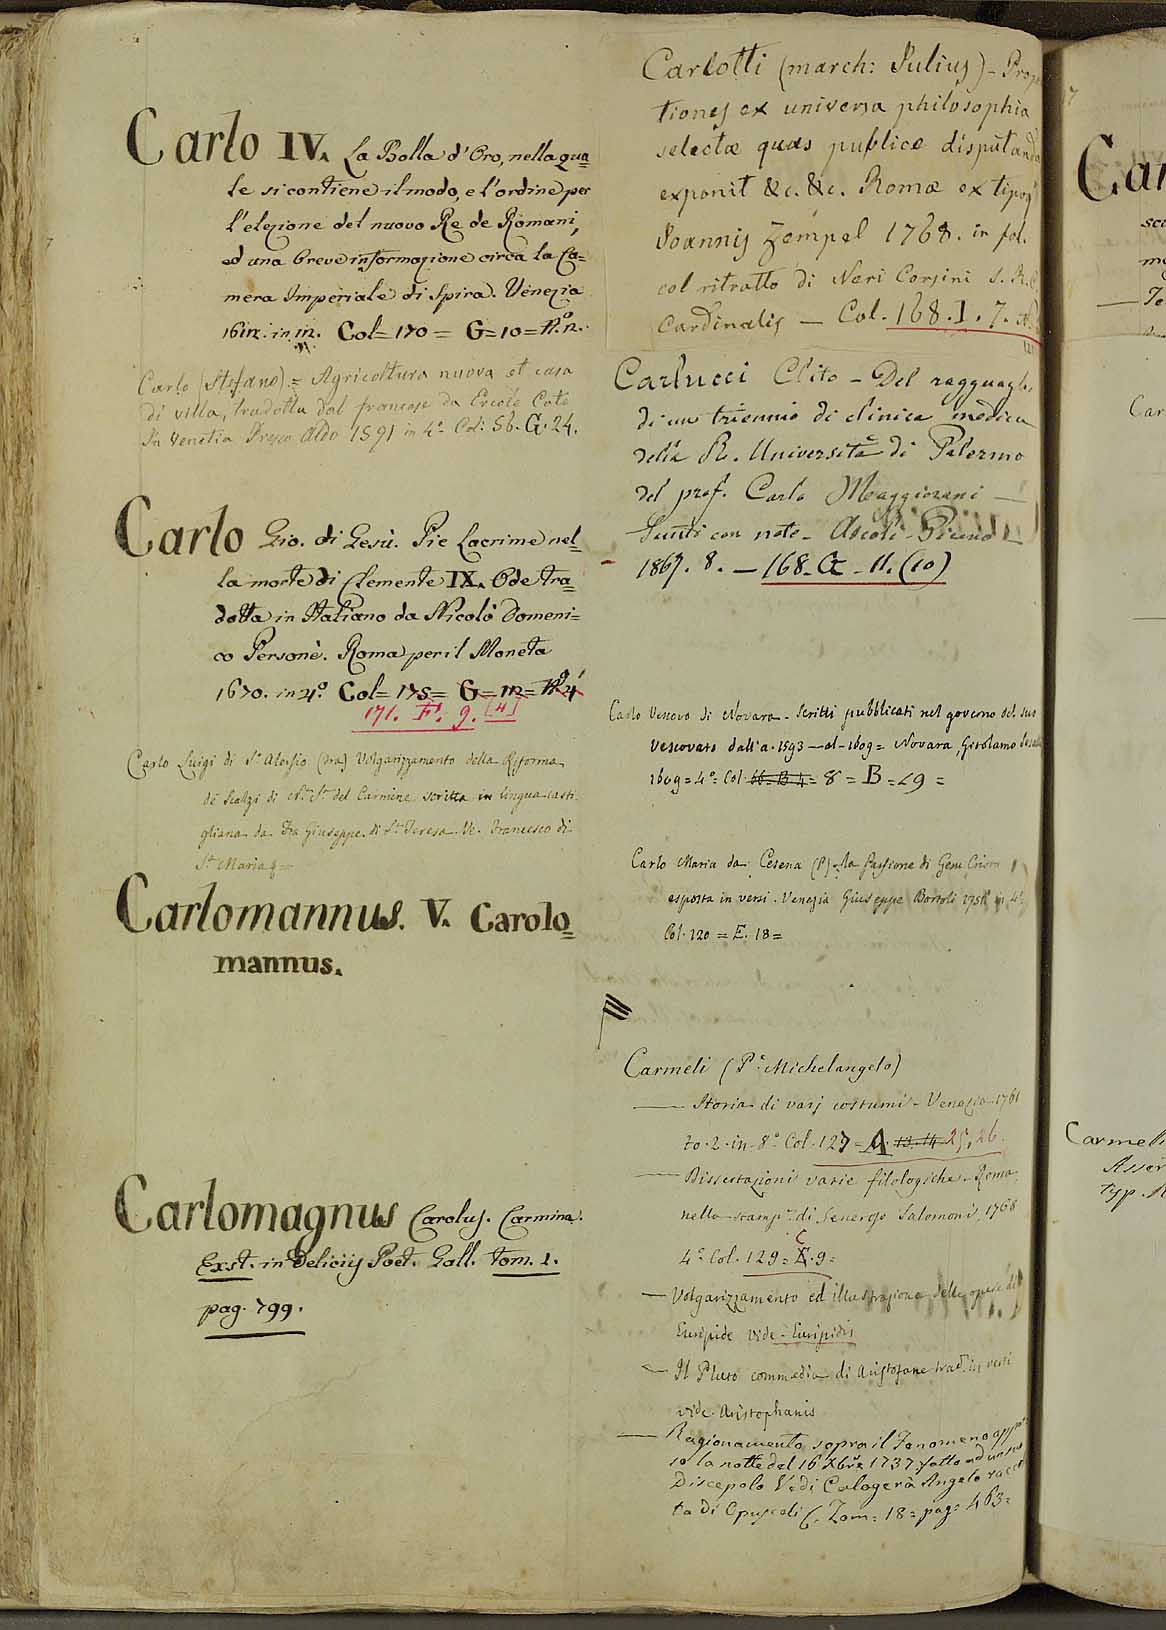 Carlo IV. La Bolla d'Oro, nella qua=
le si contiene il modo, e l'ordine per
l'elezione del nuovo Re de Romani,
ed una breve informazione circa la Ca=
mera Imperiale di Spira. Venezia
in 12. Col= 170 = G=10= N.º 2.
Carlo (Stefano) = Agricoltura nuova et casa
di villa, tradotta dal francese da Ercole Cato
In Venetia Presso Aldo 1591 in 4º Col: 56. G. 24.
Carlo Gio. di Gesù. Pie Lacrime nel=
la morte di Clemente IX. Ode tra=
dotta in Italiano da Nicolò Domeni=
co Personè. Roma per il Moneta
1670. in 4º Col= 175= G=12= Nº 4
171. F. 9. [4]
Carlo Luigi di Sº Aloisio (Fra) Volgarizzamento della Riforma
de Scalzi di Nª Sª del Carmine scritta in lingua casti
gliana da Fra Giuseppe di Sª Teresa Ve. Francesco di
Sª Maria
Carlomannus. V. Carolo=
mannus.
Carlomagnus Carolus. Carmina.
Exst. in Deliciis Poet. Gall. tom. 1.
pag. 799.
Carlotti (march: Julius) - Propo
tiones ex universa philosophia
selectæ quas publice disputandas
exponit &c. &c. Romæ ex tipog
Joannis Zempel 1768. in fol.
col ritratto di Neri Corsini S. R. E.
Cardinalis — Col. 168. I. 7.
Carlucci Clito - Del ragguaglio
di un triennio di clinica medica
della R. Università di Palermo
del prof. Carlo Maggiorani —
Sunti con note - Ascoli-Piceno -
1867. 8. — 168. G - 11. (10)
Carlo Vescovo di Novara - Scritti pubblicati nel governo del suo
Vescovato dall'a. 1593 — al - 1609 = Novara, Girolamo
1609 = 4º = Col. 66 = B 4 = 8 = B = 29 =
Carlo Maria da Cesena (P) - la Passione di Gesu Cristo
esposta in versi. Venezia Giuseppe Bortoli in 4º
Col. 120 = E. 18 =
Carmeli (Pe Michelangelo)
— Storia di varj costumi - Venezia 1761
to. 2. in - 8º Col. 127 = A 13. 14 25, 26.
— Dissertazioni varie filologiche - Roma
nella stampª di Generoso Salomoni, 1768
C
4º Col. 129 = E. 9 =
— Volgarizzamento ed illustrazione delle opere di
Euripide vide - Euripidis
— Il Pluto commedia di Aristofane trad. in versi
vide Aristophanis
— Ragionamento sopra il Fenomeno appar
so la notte del 16 Xbre 1737. fatto ad un suo
Discepolo Vedi Calogerà Angelo raccol
ta di Opuscoli &. Tom= 18= pag= 463=
Car
Car
Carmeli
Asser
typ.